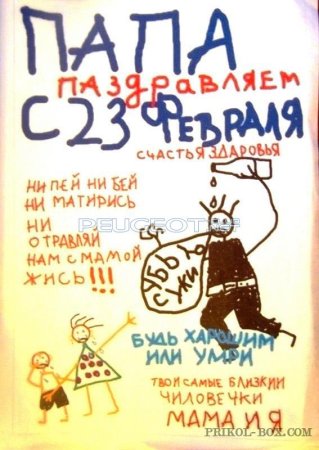 ПАПА
ПАЗДРАВЛЯЕМ
С 23 ФЕВРАЛЯ
СЧАСТЬЯ ЗДАРОВЬЯ
НИ ПЕЙ НИ БЕЙ
НИ МАТИРИСЬ
НИ
ОТРАВЛЯЙ
НАМ С МАМОЙ
ЖИСЬ!!!
БУДЬ ХАРОШИМ
ИЛИ УМРИ
ТВОИ САМЫЕ БЛИЗКИИ
ЧИЛОВЕЧКИ
МАМА И Я
PRIKOL-BOX.COM